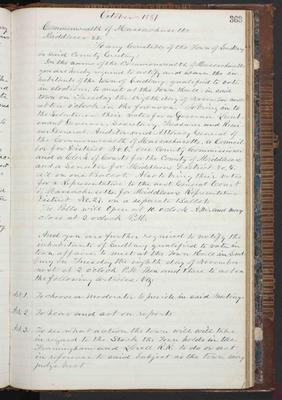 October 1881
363
Commonwealth of Massachusetts
Middlesex ss.
To any Constable of the Town of Sudbury
in said County Greeting:
In the name of the Commonwealth of Massachusetts
you are hereby required to notify and warn the in-
habitants of the town of Sudbury qualified to vote
in elections, to meet at the Town House, in said
town on Tuesday the eighth day of November next
at ten o'clock in the forenoon to bring in to
the Selectmen their votes for a Governor, Lieut-
enant Governor, Secretary, Treasurer and Receiv-
er General, Auditor and Attorney General of
the Commonwealth of Massachusetts, a Council-
lor for District No 6, one County Commissioner
and a Clerk of Courts for the County of Middlesex
and a Senator for Middlesex District No 5.
all on one ballot. Also to bring their votes
for a Representative to the next General Court
of Massachusetts for Middlesex Representative
District No. 27, on a separate ballot.
The Polls will open at 10 o'clock A.M. and may
close at 2 o'clock P.M.
And you are further required to notify the
inhabitants of Sudbury qualified to vote in
town affairs to meet at the Town House in said
on Tuesday the eighth day of November
next at 2 o'clock P.M. then and there to act on
the following articles: viz:
Art 1. To choose a Moderator to preside in said Meeting.
Art 2. To hear and act on reports
Art 3. To see what action the town will take
in regard to the Stock the Town holds in the
Framingham and Lowell R.R. to do or act
in reference to said Subject as the town may
judge best.